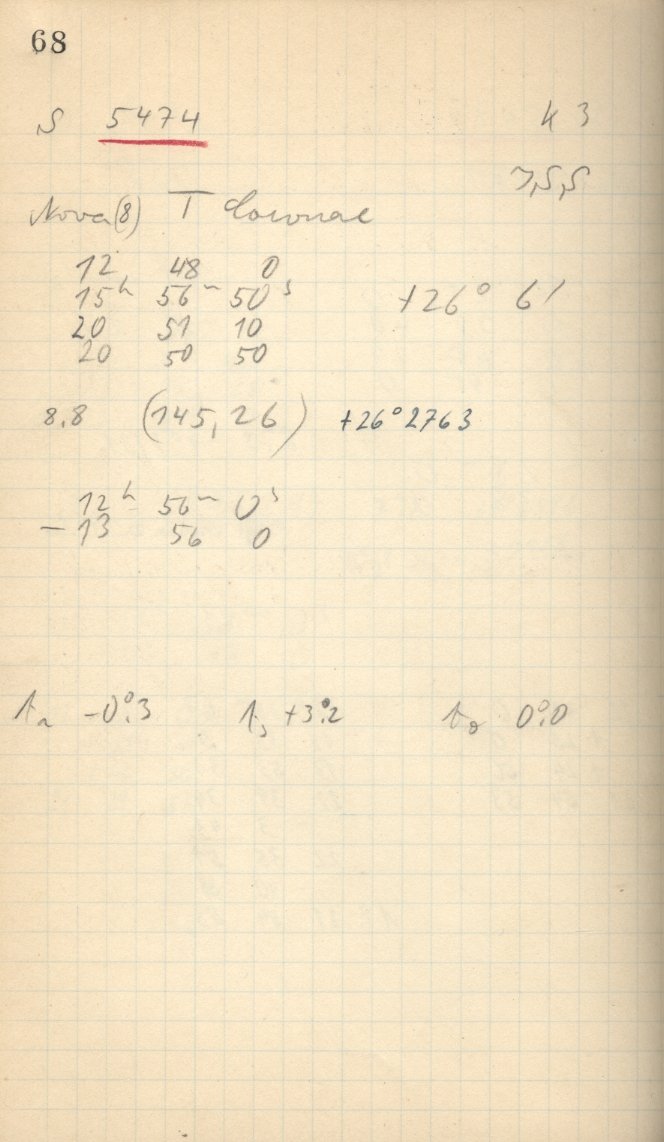 68
S 5474 K 3
J, S, S
Nova (8) T Coronae
12 48 0
15ʰ 56ᵐ 50ˢ +26° 6'
20 51 10
20 50 50
8.8 (145, 26) +26° 2763
12ʰ 56ᵐ 0ˢ
- 13 56 0
-0°.3 +3°.2 0°.0